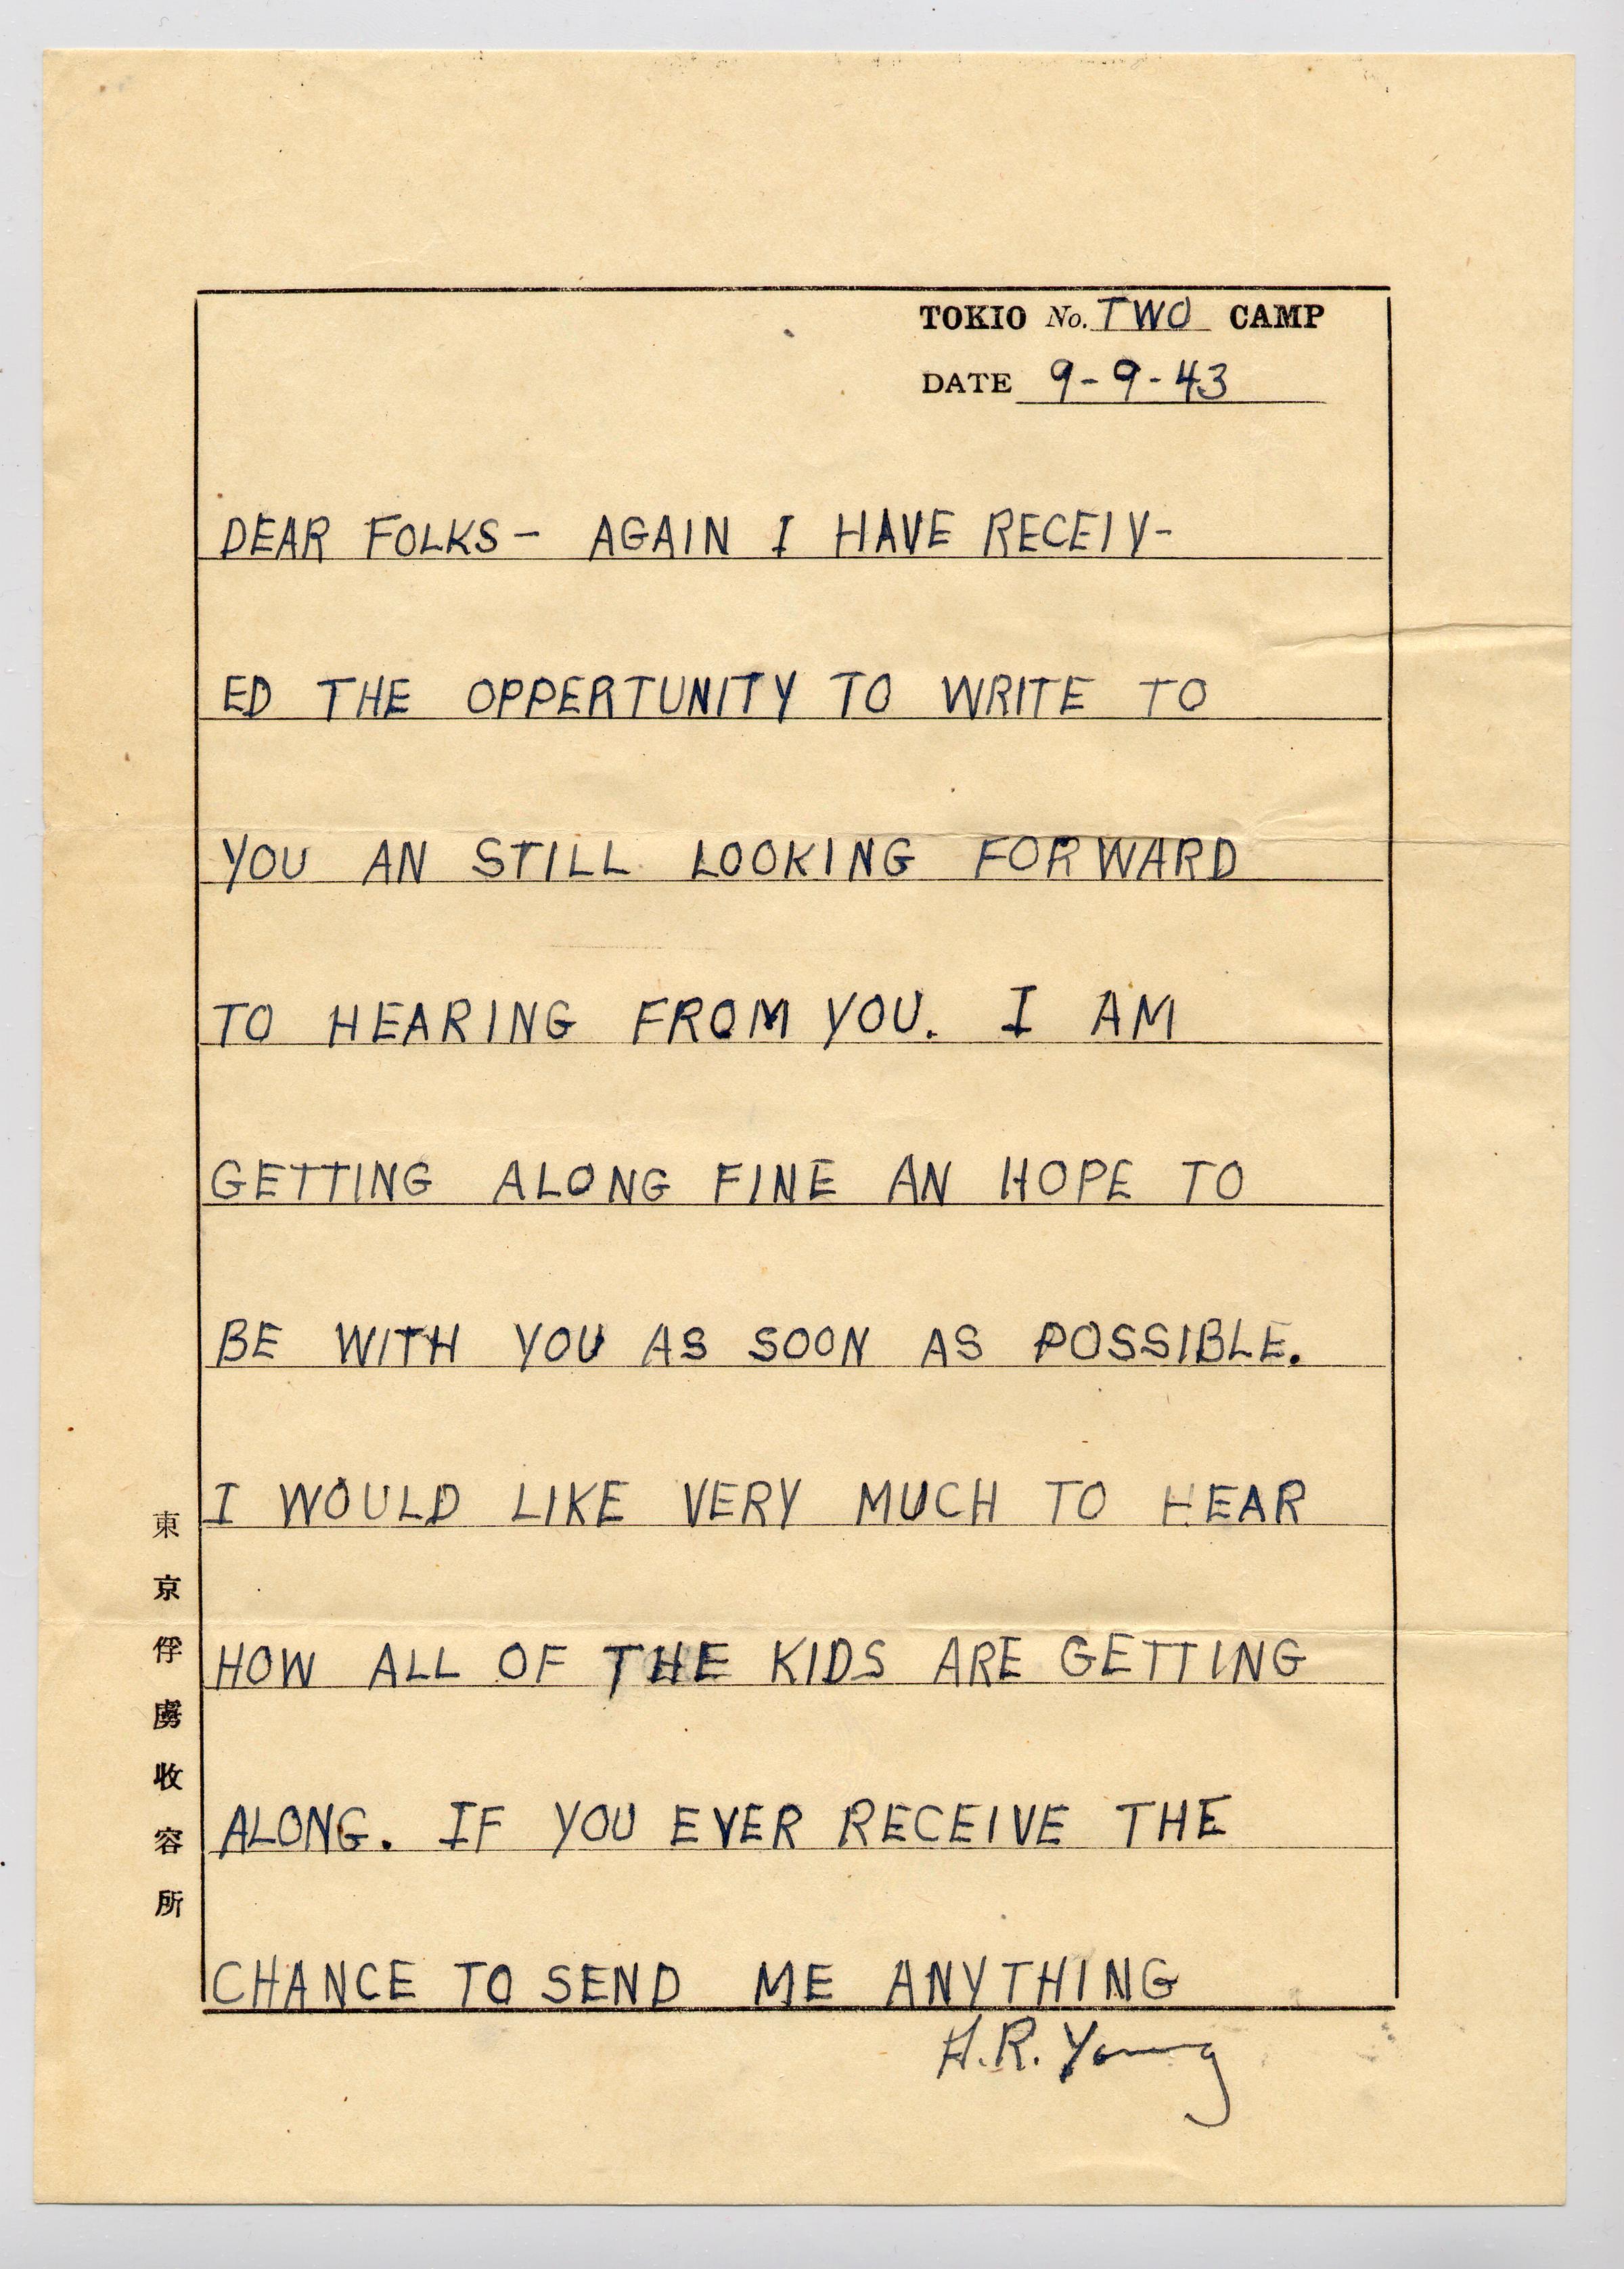 TOKIO No. TWO CAMP
DATE 9-9-43
DEAR FOLKS- AGAIN I HAVE RECEIV-
ED THE OPPERTUNITY TO WRITE TO
YOU AN STILL LOOKING FORWARD
TO HEARING FROM YOU. I AM
GETTING ALONG FINE AN HOPE TO
BE WITH YOU AS SOON AS POSSIBLE.
I WOULD LIKE VERY MUCH TO HEAR
HOW ALL OF THE KIDS ARE GETTING
ALONG. IF YOU EVER RECEIVE THE
CHANCE TO SEND ME ANYTHING
H.R. Young
東京俘虜收容所